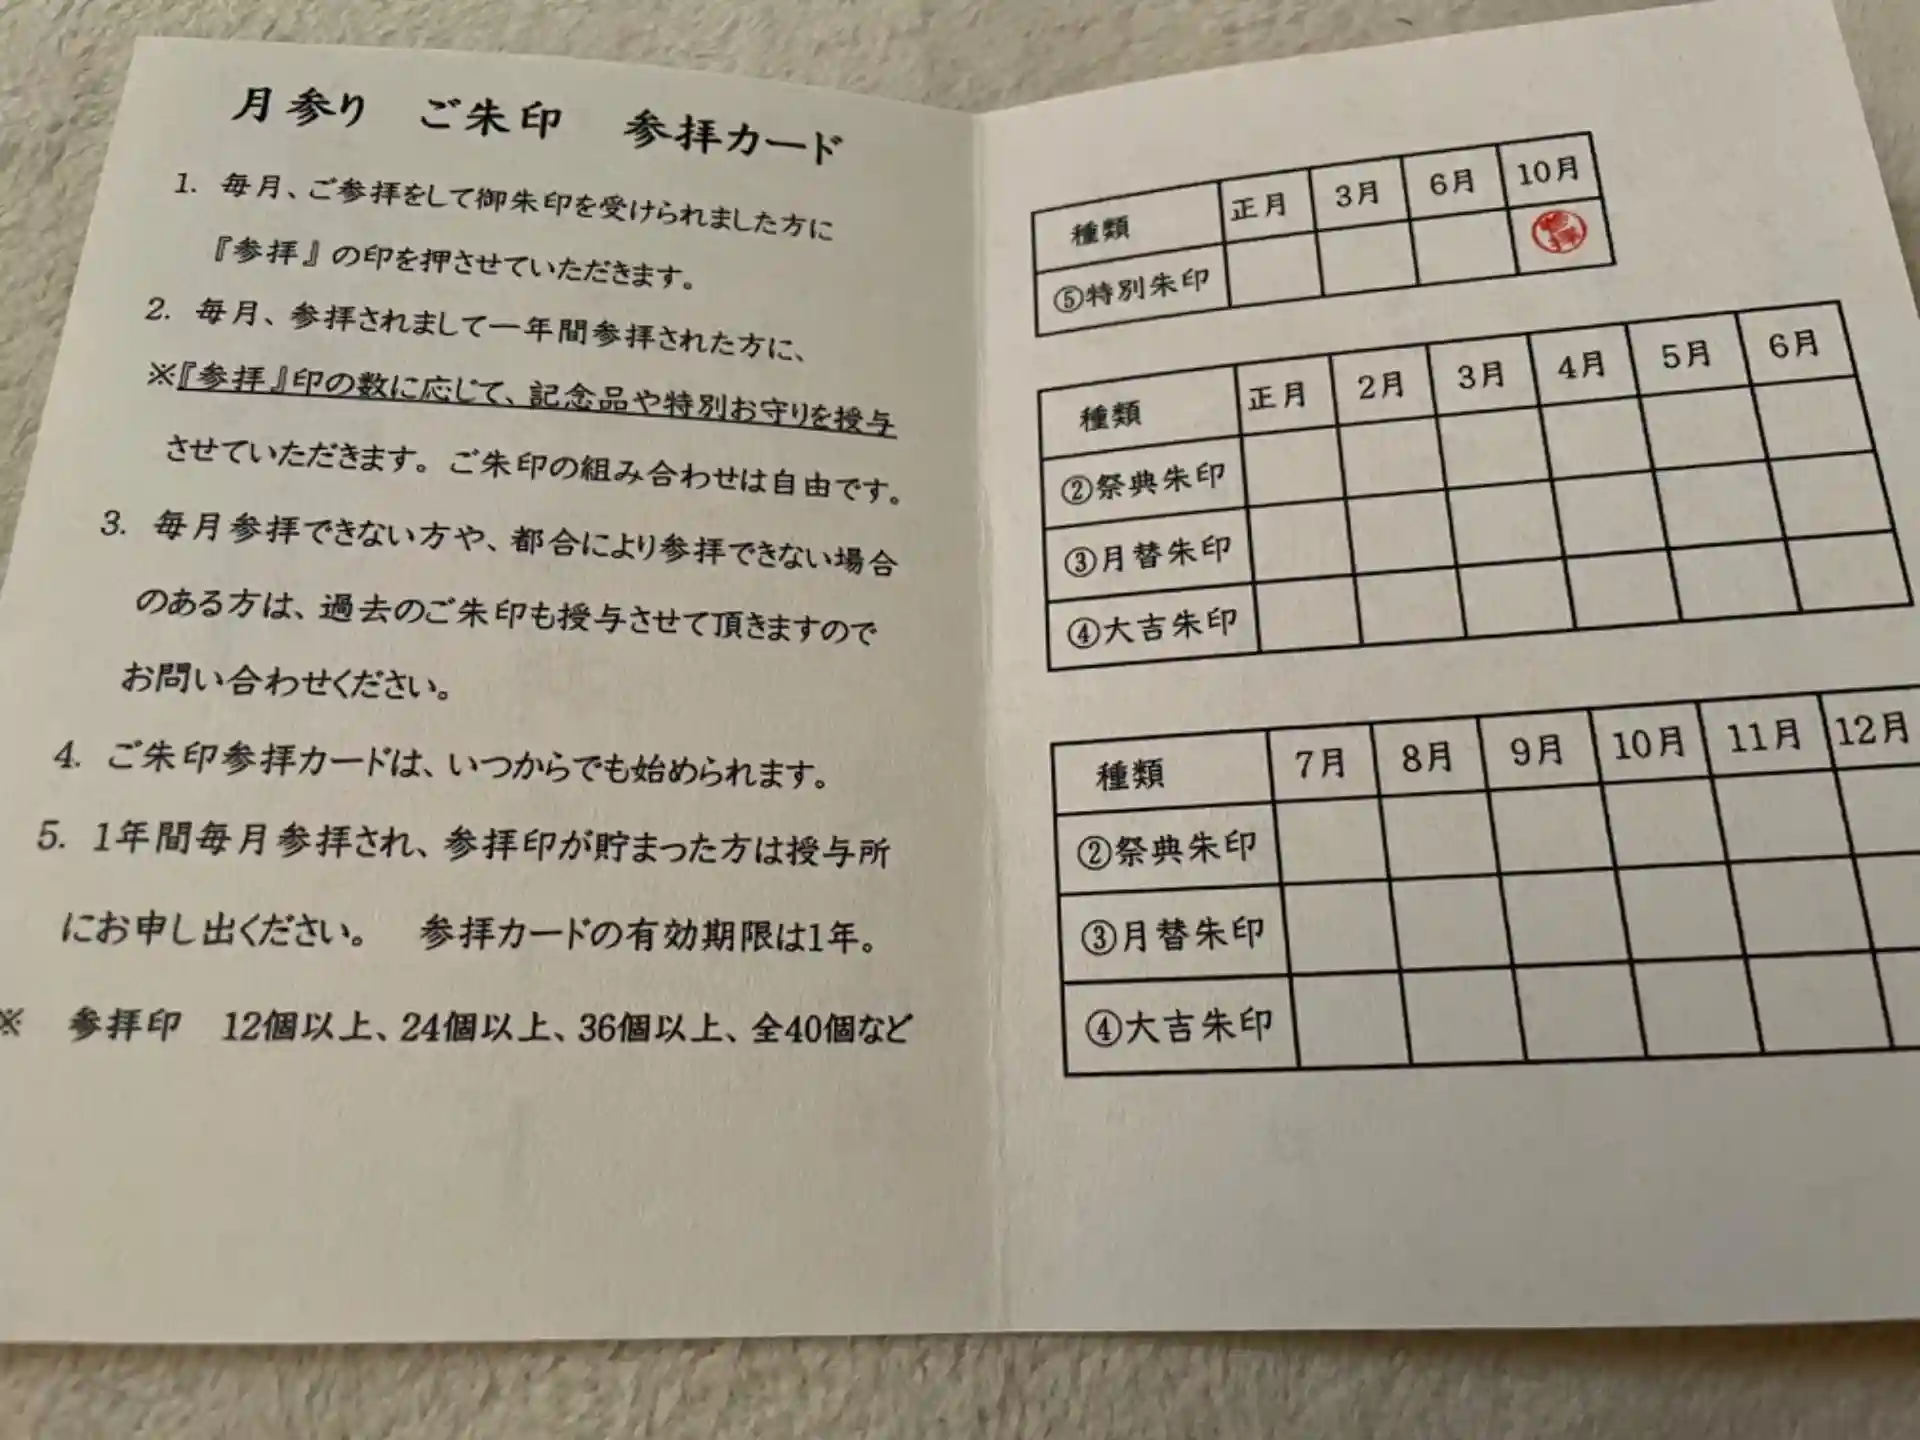 月参り　ご朱印　参拝カード
1. 毎月、ご参拝をして御朱印を受けられました方に
『参拝』の印を押させていただきます。
2. 毎月、参拝されまして一年間参拝された方に、
※『参拝』印の数に応じて、記念品や特別お守りを授与
させていただきます。ご朱印の組み合わせは自由です。
3. 毎月参拝できない方や、都合により参拝できない場合
のある方は、過去のご朱印も授与させて頂きますので
お問い合わせください。
4. ご朱印参拝カードは、いつからでも始められます。
5. 1年間毎月参拝され、参拝印が貯まった方は授与所
にお申し出ください。　参拝カードの有効期限は1年。
※　参拝印　12個以上、24個以上、36個以上、全40個など
種類 正月 3月 6月 10月
⑤特別朱印
種類 正月 2月 3月 4月 5月 6月
②祭典朱印
③月替朱印
④大吉朱印
種類 7月 8月 9月 10月 11月 12月
②祭典朱印
③月替朱印
④大吉朱印